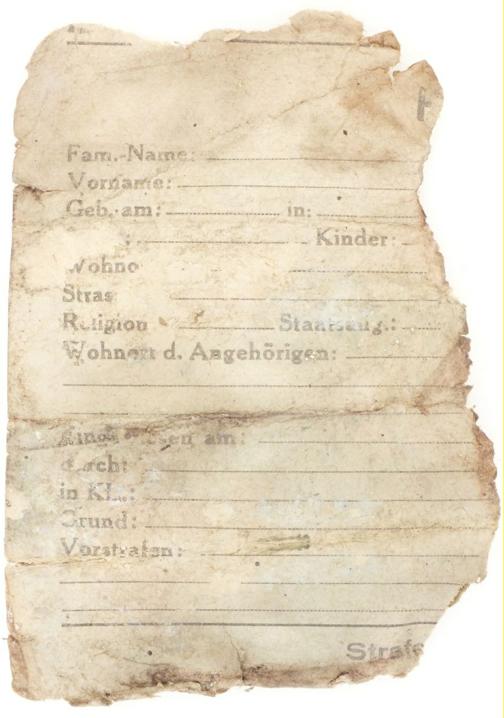 Fam.-Name:
Vorname:
Geb. am: in:
: Kinder:
Wohno
Stras
Religion Staatsang.:
Wohnort d. Angehörigen:
am:
durch:
in KL.:
Grund:
Vorstrafen:
Strafe